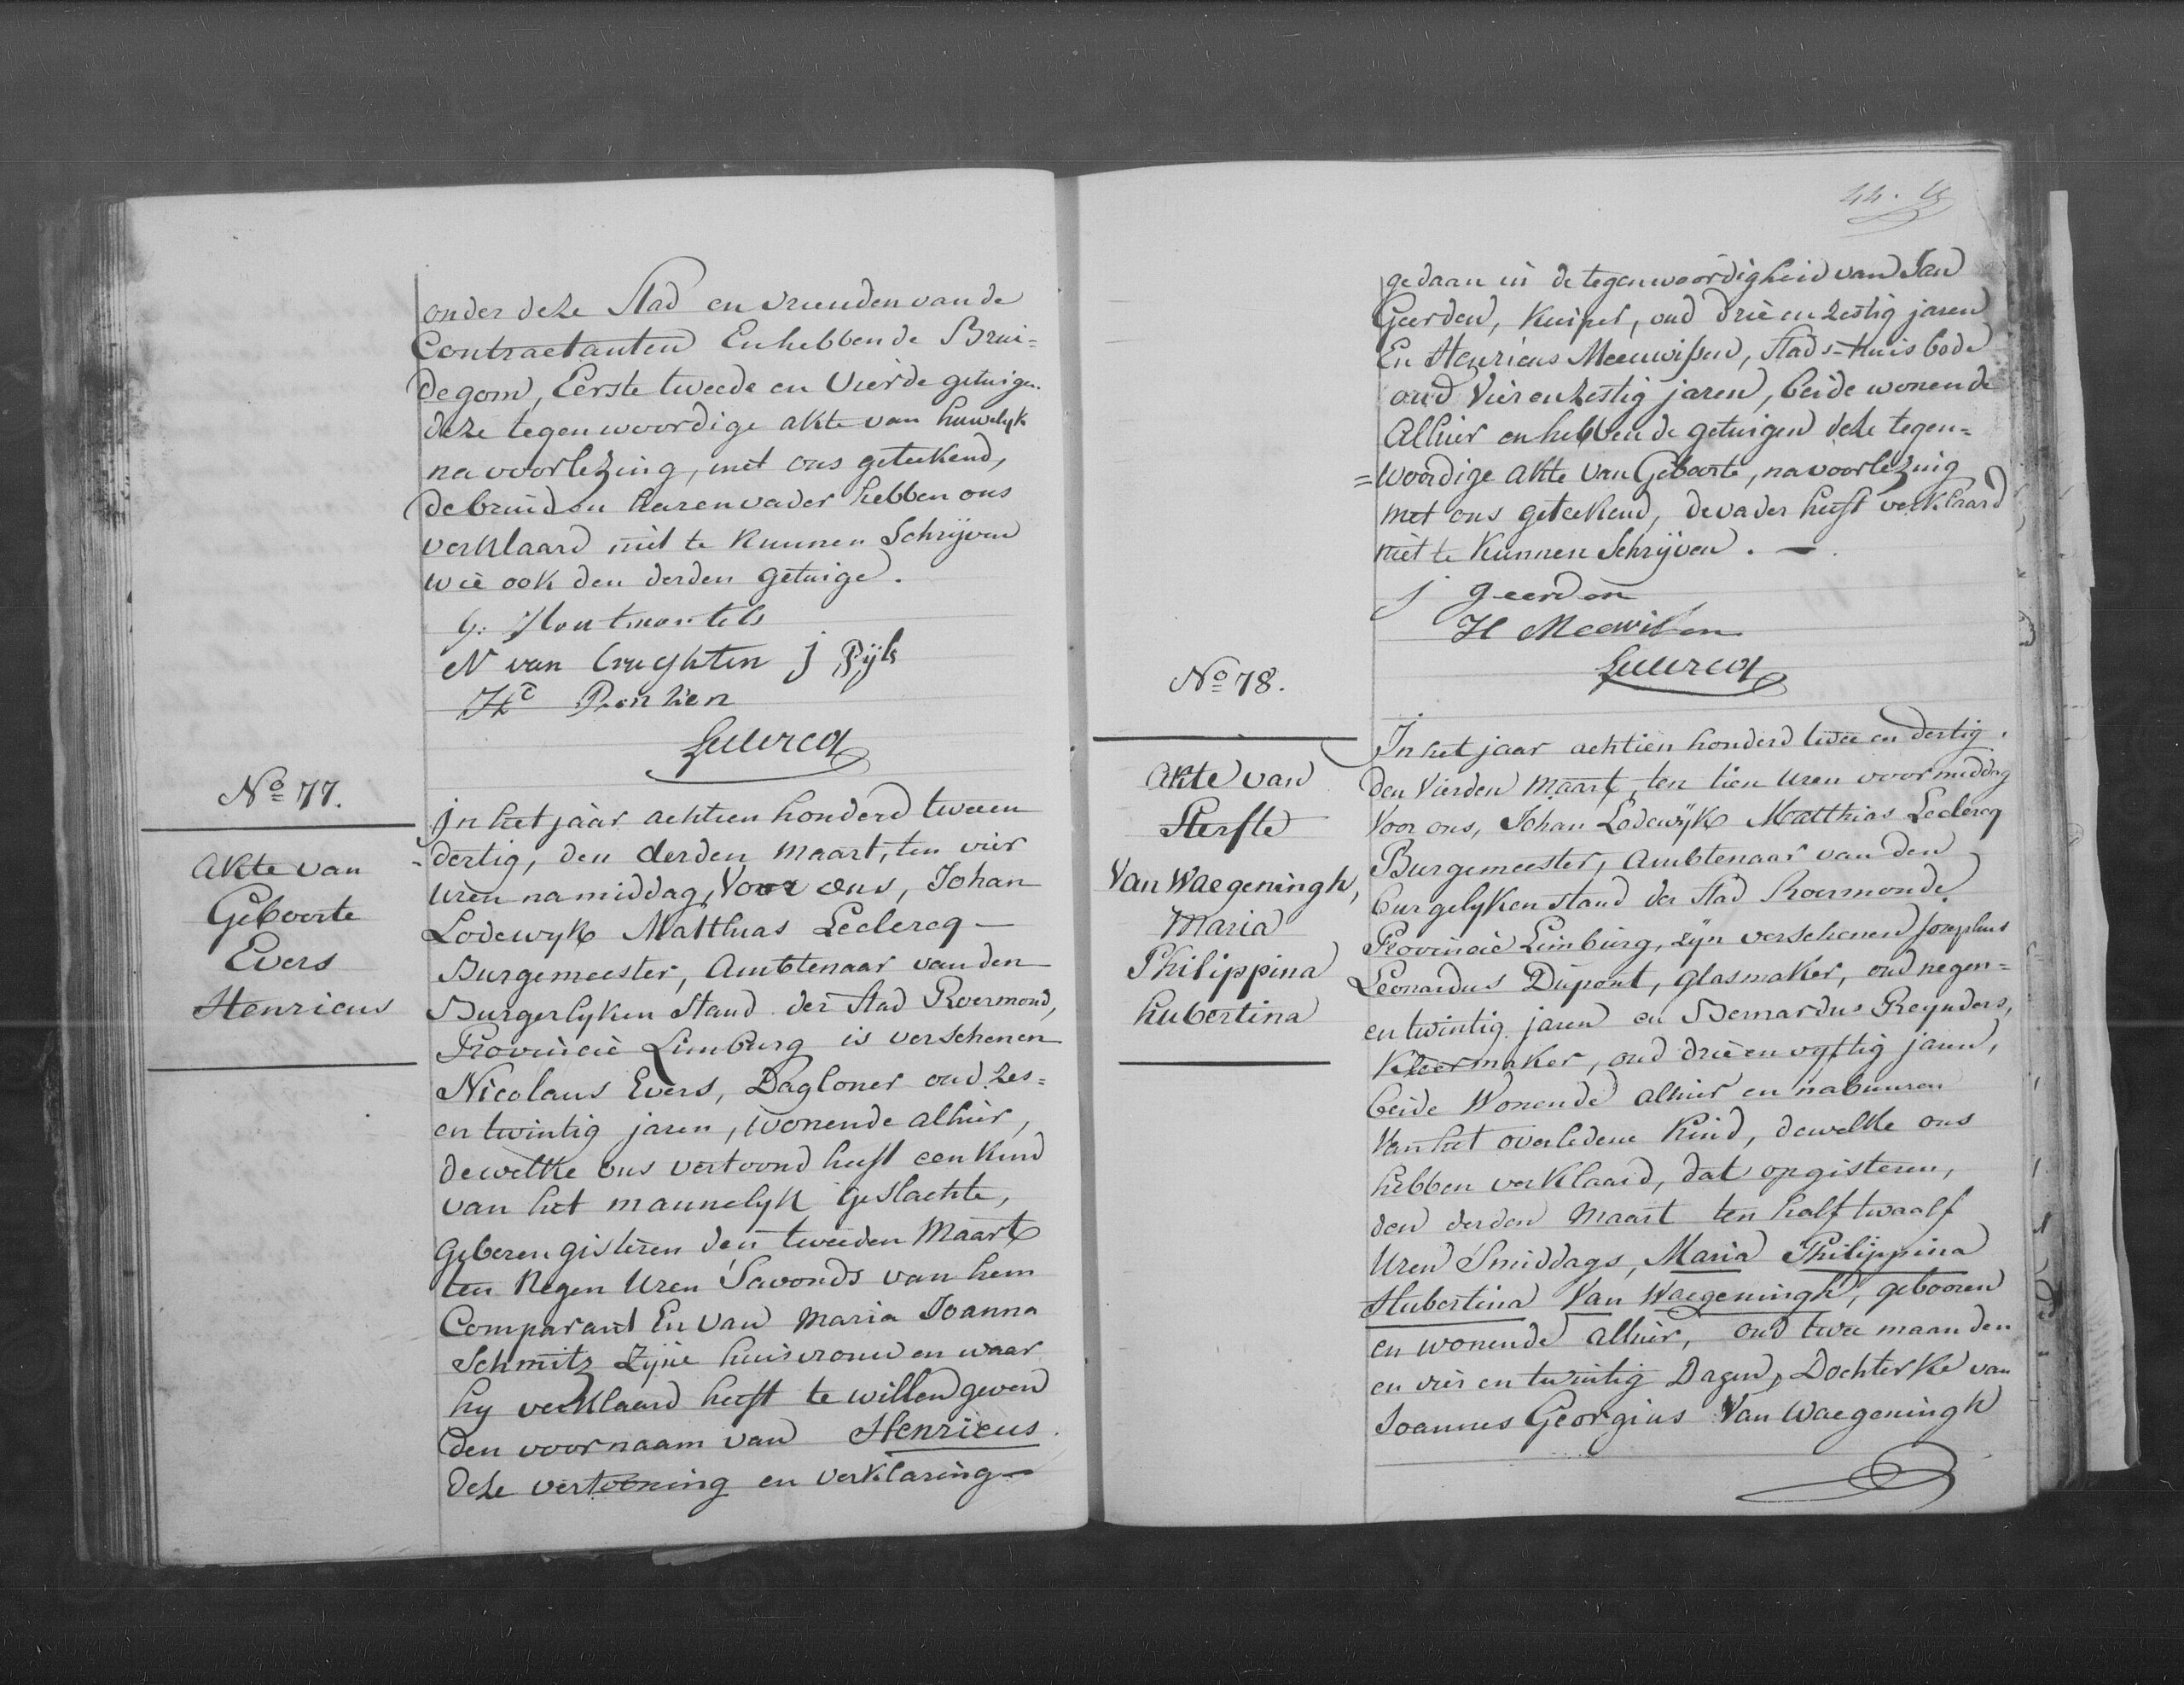 onder deze Stad en vrienden van de
Contractanten En hebben de Brui=
degom, Eerste tweede en Vierde getuigen
deze tegenwoordige akte van huwelyk
na voorlezing, met ons geteekend,
de bruid en haren vader hebben ons
verklaard niet te kunnen Schrijven
wie ook den derden getuige.
G: Houtmortels
N van Cruchten J Pijls
Leclercq
No 77.
Akte van
Geboorte
Evers
Henricus
In het jaar achtien honderd twee en
=dertig, den derden Maart, ten vier
Uren namiddag, Voor ons, Johan
Lodewyk Matthias Leclercq —
Burgemeester, Ambtenaar van den
Burgerlyken Stand der Stad Roermond,
Provincie Limburg is verschenen
Nicolaus Evers, Dagloner oud zes=
en twintig jaren, wonende alhier,
dewelke ons vertoond heeft een Kind
van het mannelyk geslachte,
Geboren gisteren den tweeden Maart
ten Negen Uren 'Savonds van hem
Comparant En van Maria Joanna
Schmitz Zijne huisvrouw en waar
hy verklaard heeft te willen geven
den voornaam van Henricus.
deze vertooning en verklaring —
44.
gedaan in de tegenwoordigheid van Jan
Geerden, Kuiper, oud drie en zestig jaren
En Henricus Meeuwissen, Stads-huis bode
oud Vier en zestig jaren, beide wonende
Alhier en hebben de getuigen deze tegen=
=woordige Akte van Geboorte, na voorlezing
met ons geteekend, de vader heeft verklaard
niet te kunnen Schrijven. —
J geerden
H Meewissen
Leclercq
No 78.
Akte van
Sterfte
Van Waegeningh,
Maria
Philippina
hubertina
In het jaar achtien honderd twee en dertig,
den Vierden Maart, ten tien Uren voormiddag
Voor ons, Johan Lodewijk Matthias Leclercq
Burgemeester, Ambtenaar van den
burgelyken stand der Stad Roermonde
Provincie Limburg, zyn verschenen Josephus
Leonardus Dupont, Glasmaker, oud negen=
en twintig jaren en Bernardus Reynders,
Kleermaker, oud drie en vyftig jaren,
beide Wonende alhier en nabuuren
Van het overledene Kind, dewelke ons
hebben verklaard, dat op gisteren,
den derden Maart ten half twaalf
Uren Smiddags, Maria Philippina
Hubertina Van Waegeningh, gebooren
en wonende alhier, oud twee maanden
en vier en twintig Dagen, Dochterke van
Joannes Georgius Van Waegeningh